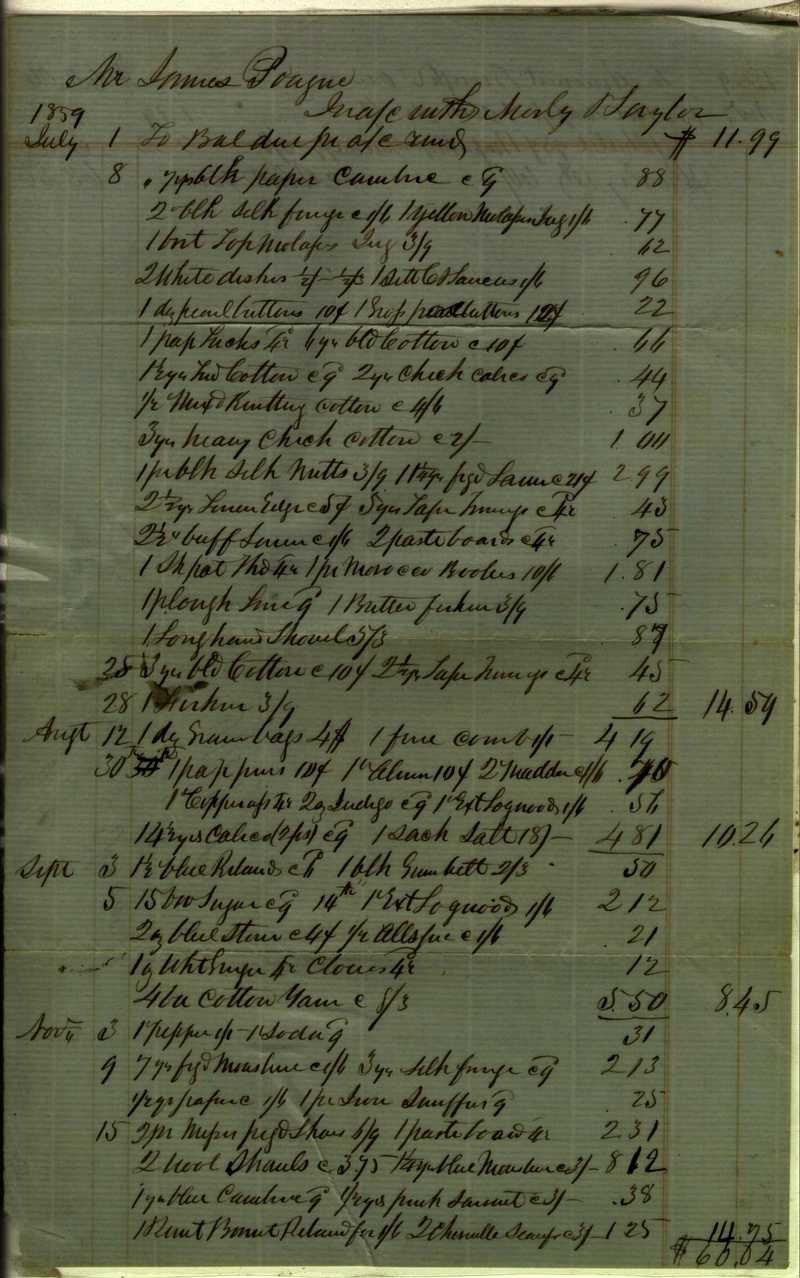 Mr James Poague
In a/c with Mosby & Taylor
1859
July 1 To Bal due pr a/c rend $ 11.99
8 " 7 yds blk paper Cambric c 9 88
2 blk silk fringe c 1/6 1 yellow Molasses Jug 1/6 .77
1 Top Molases Jug 3/9 62
2 White dishes 1 Sett C & Saucers 1/6 96
1 dz pearl buttons 10¢ 1 Gross buttons 22
1 pap Tacks 6 yds bld Cotton c 10¢ .66
1½ yds Cotton c 9 2 yds Check calico c 9 .44
½ Knitting cotton c 4/6 .37
3 yds heavy Check cotton c 2/- 1.00
1 pr blk silk Mitts 3/9 2.99
2½ yds Linen Edge c 5¢ 5 yds Tape Trimgs c 43
2½ " buff c 1/6 2 pasteboards 75
1 Sk pat Thd 1 pr Morocco Bootees 10/6 1.81
1 plough Line 9 1 Butter firkin 3/9 .75
1 Long hand Shovel 5/3 87
25 3 yds bld Cotton c 10¢ 2½ yds Tape Trimgs 45
28 1 firkin 3/9 62 14.59
Augt 12 1 dz Grain bags 4$ 1 fine comb 1/- 4 19
30th 1 pap pins 10¢ 1 " Alum 10¢ 2 " Madder c 1/6 .70
1 " Copperass 2 oz Indigo c 9 1 " Ext Logwood 1/6 .56
14½ yds Calico (2ps) c 9 1 Sack Salt 18/- 4 81 10.26
Sept 3 1½ " blue Riband 1 blk Gum belt 2/3 50
5 15 " Sugar c 9 14th 1 " Ext Logwood 1/6 2 12
2 oz blue stone c 4¢ ½ Allspice c 1/6 .21
1 oz Wht Ginger Cloves 12
4 bu Cotton Yarn c 8/3 5.50 8.45
Novr 3 1 " pepper 1/- 1 " Soda 9 31
9 7 yds figd c 1/6 3 yds silk fringe c 9 2 13
paper c 1/6 1 pr Iron Snuffers 9 25
15 2 pr Misses pegd Shoes 6/9 1 pasteboard 2 31
2 wool Shawls c 3.75 blue c 3/- 8 12
1 yd blue Cambric 9 ½ yd pink Sarsnet c 3/- .38
1 Remt Bonnet Riband for 1/6 2 Chenille Scarfs c 3/- 1 25 14.75
$ 60.04